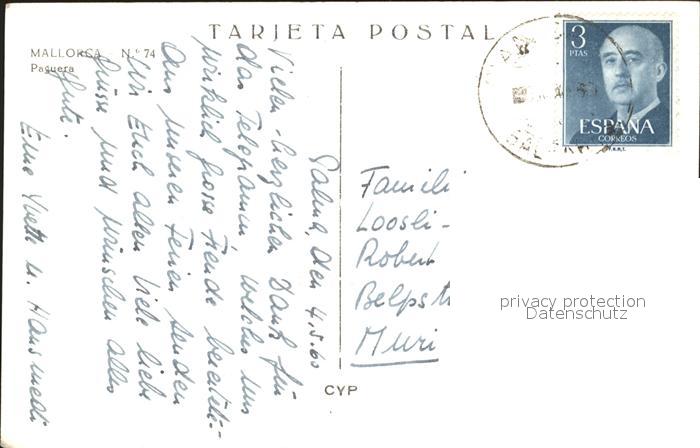 TARJETA POSTAL
MALLORCA N.º 74
Paguera
Palma, den 4.5.60
Vielen herzlichen Dank für
das Telegramm, welches uns
wirklich grosse Freude bereitete.
Aus unseren Ferien senden
wir Euch allen viele liebe
Grüsse und wünschen alles
Gute.
Eure Yvette u. Hansruedi
Familie
Loosli-
Robert
Belpstr
Muri
CYP
3
PTAS
ESPAÑA
CORREOS
privacy protection
Datenschutz